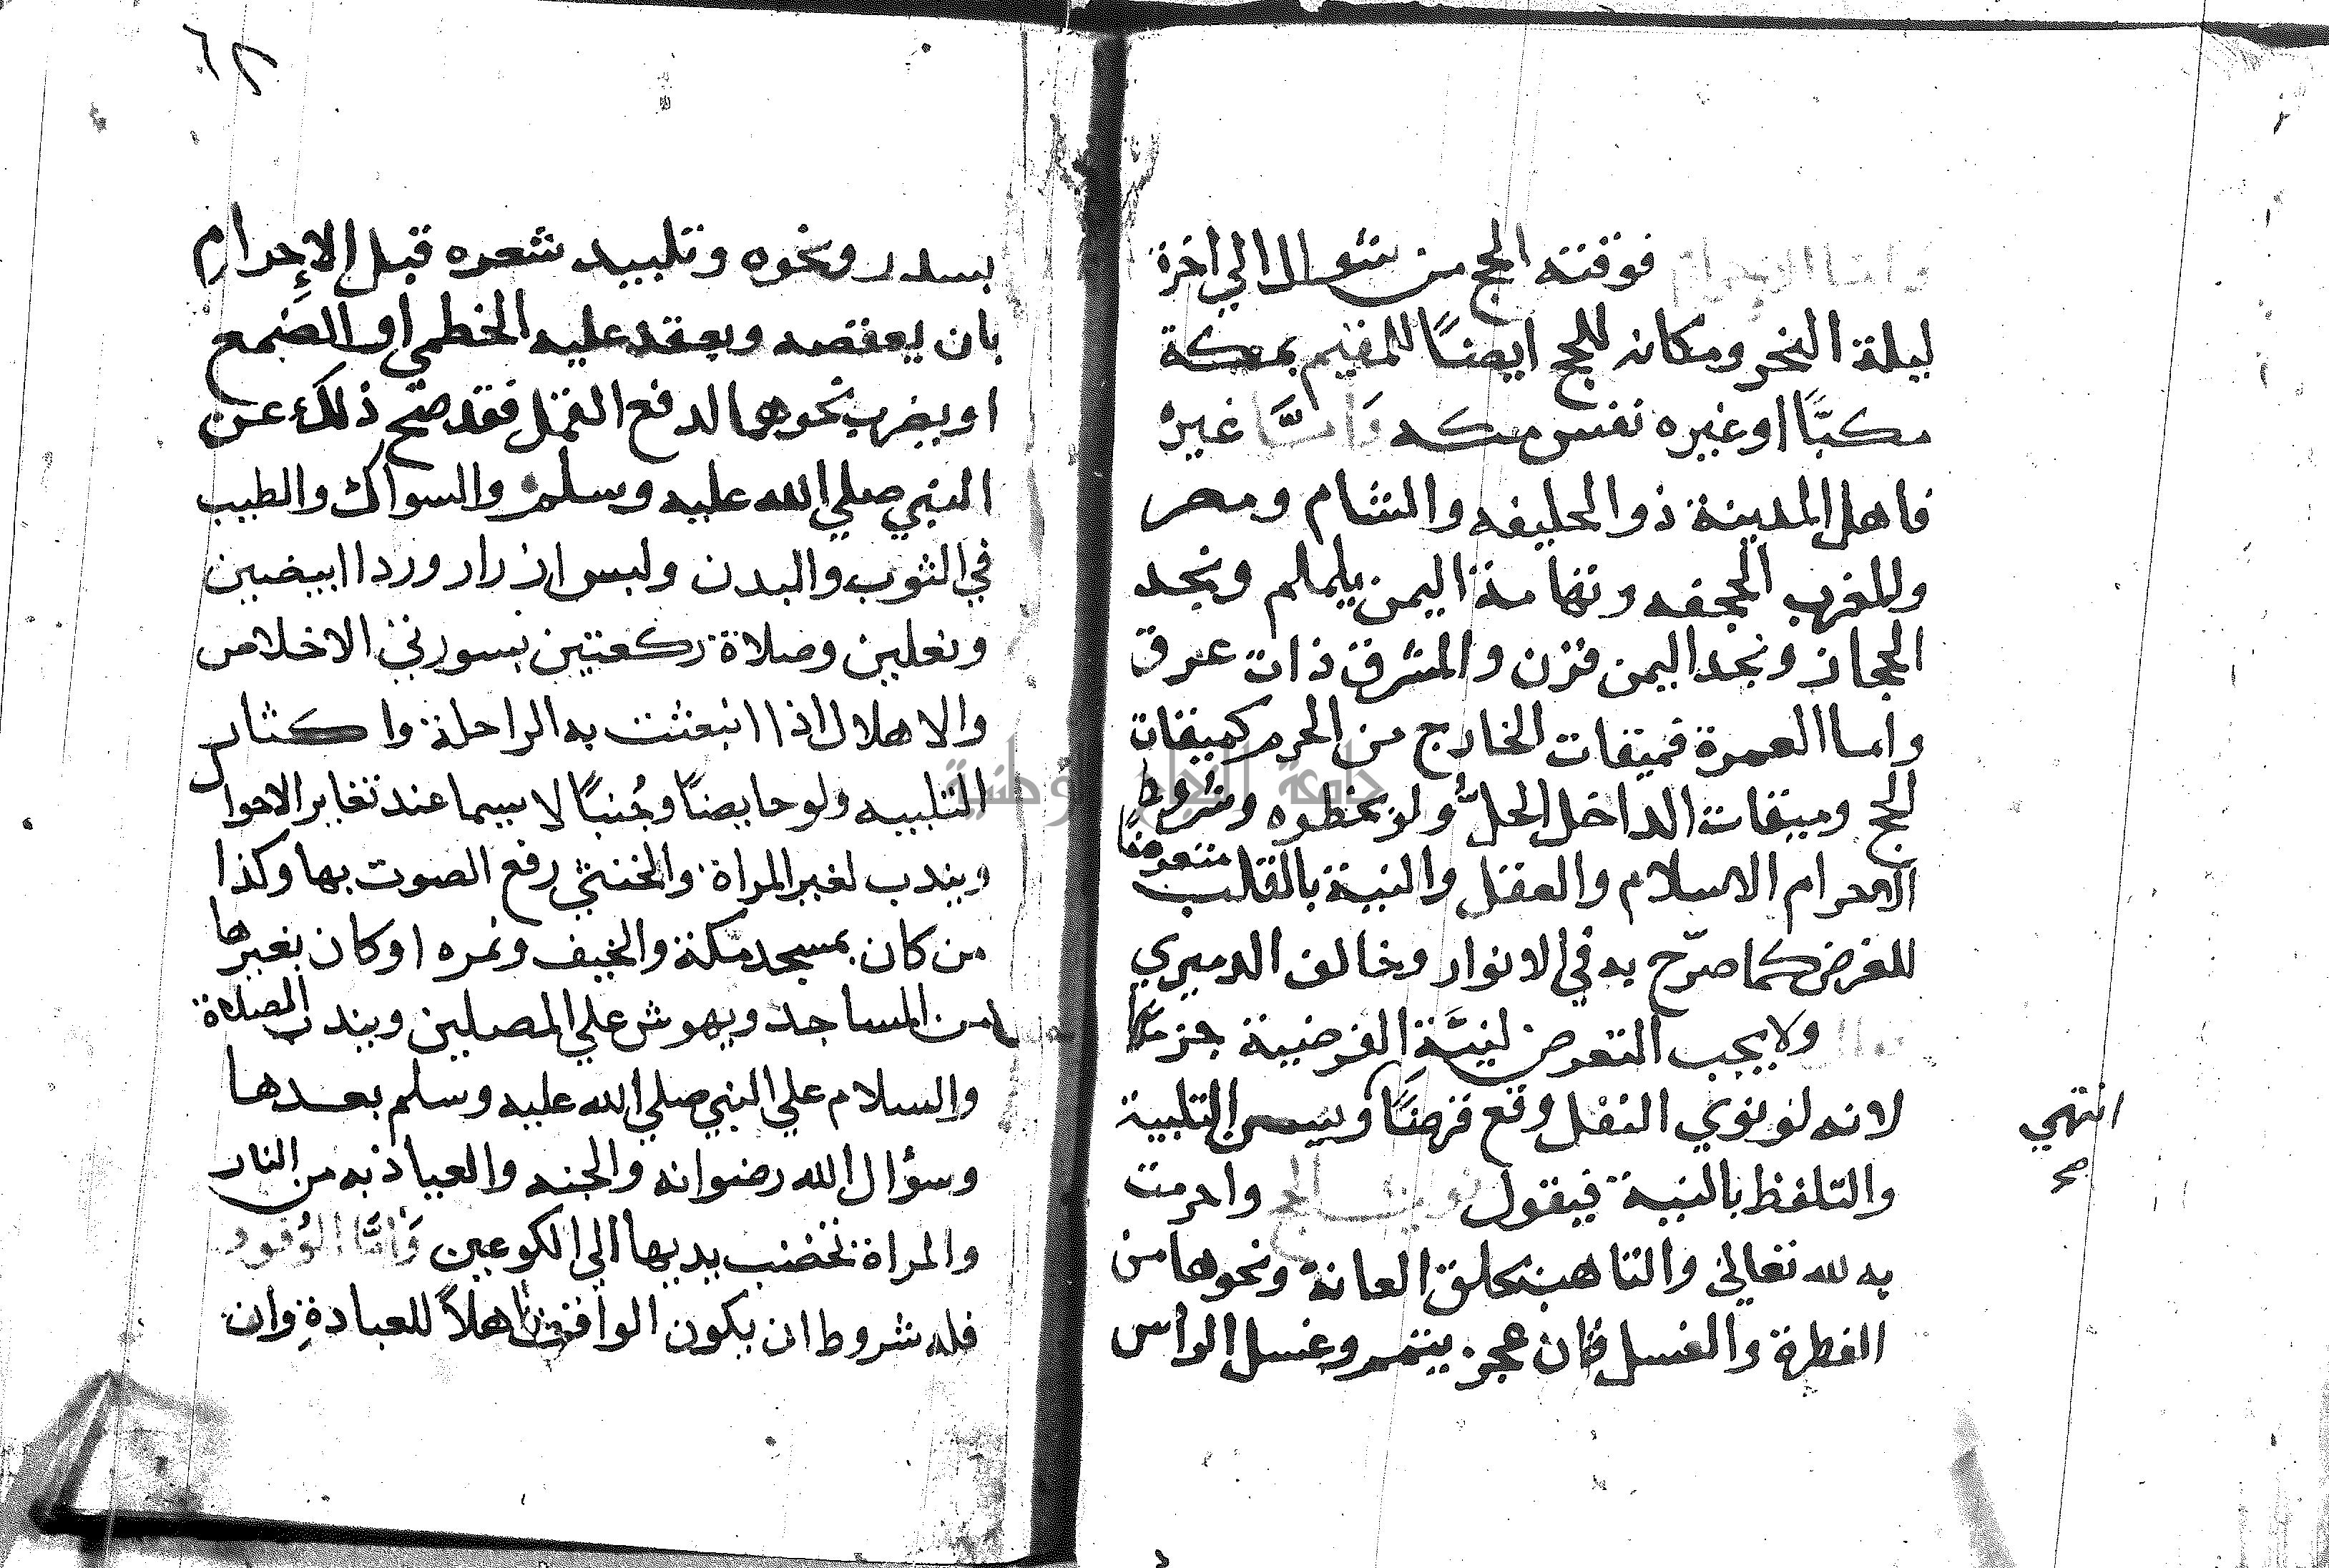 واما الاحرام فوقته الحج من شوال الي اخرة
ليلة النحر ومكانه للحج ايضًا للمقيم بمكة
مكيًّا او غيره نفس مكه وَامَّا غيرُ
فاهل المدينة ذو الحليفه والشام ومصر
وللمغرب الجحفه وتهامة اليمن يلملم ونجد
الحجاز ونجد اليمن قرن والمشرق ذات عرق
واما العمرة فميقات الخارج من الحرم كميقات
الحج وميقات الداخل الحلُّ ولو بخطوه وشروط
الاحرام الاسلام والعقل والنية بالقلب متعرضًا
للفرض كما صرّح به في الانوار وخالف الدميري
قال ولا يجب التعرض لنيَّةِ الفرضية جزمًا
لانه لو نوي النفل وقع فرضًا ويسن التلبية
انتهي
صح
والتلفظ بالنية فيقول نويت الحج واحرمت
به لله تعالي والتاهب بحلق العانة ونحوها من
الفطرة والغسل فان عجز يتمم وغسل الراس
٦٢
بسدر ونحوه وتلبيد شعره قبل الإحرام
بان يعقصه ويعقد عليه الخطمي او الصَمغ
او يضرب نحوهما لدفع القمل فقد صح ذلك عن
النبي صلي الله عليه وسلم والسواك والطيب
في الثوب والبدن ولبس ازرار وردا ابيضين
ونعلين وصلاة ركعتين بسورتي الاخلاص
والاهلال اذا انبعثت به الراحلة واكثار
التلبيه ولو حايضًا وجُنبًا لا سيما عند تغاير الاحوا
ويندب لغير المراة والخنثي رفع الصوت بها وكذا
من كان بمسجد مكة والخيف ونمره او كان بغيرها
من المساجد ويهوش علي المصلين ويندب الصلاة
والسلام علي النبي صلي الله عليه وسلم بعدها
وسؤال الله رضوانه والجنه والعياذ به من النار
والمراة تخضب يديها الي الكوعين وَامَّا الوُقوف
فله شروط ان يكون الواقف اهلاً للعبادةِ وان
جامعة النجاح الوطنية